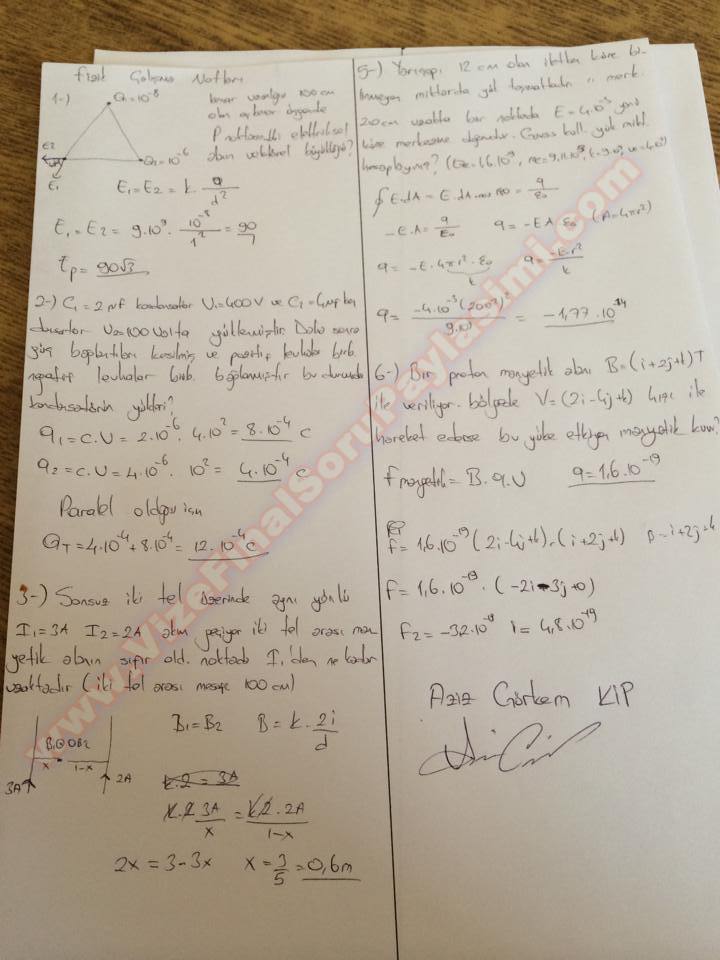 Fizik Çalışma Notları
1-) Q1=10^-8
kenar uzunluğu 100 cm
olan eşkenar üçgende
P noktasındaki elektriksel
alanın vektörel büyüklüğü?
E2
E1
Q2=10^-6
E1=E2 = k. q/d²
E1=E2 = 9.10^9. 10^-8/1² = 90
Ep= 90√3
2-) C1 = 2 μf kondansatör V1=400V ve C2=4μf kon
dansatör V2=100 Volta yüklenmiştir. Daha sonra
güç bağlantıları kesilmiş ve pozitif levhalar birb.
negatif levhalar birb. bağlanmıştır bu durumda
kondansatörün yükleri?
q1=C.U = 2.10^-6. 4.10² = 8.10^-4 C
q2=C.U=4.10^-6. 10² = 4.10^-4 C
Paralel olduğu için
QT=4.10^-4+8.10^-4= 12.10^-4 C
3-) Sonsuz iki tel üzerinde aynı yönlü
I1=3A I2=2A akım geçiyor iki tel arası man
yetik alanın sıfır old. noktada I1'den ne kadar
uzaktadır (iki tel arası mesafe 100 cm)
B1⊙⊙B2
x 1-x
3A 2A
B1=B2 B= k. 2i/d
k.2 = 3A
k.2 3A/x = k2. 2A/1-x
2x = 3-3x x = 3/5 = 0,6m
5-) Yarıçapı 12 cm olan iletken küre bi-
linmeyen miktarda yük taşımaktadır. merk.
20cm uzakta bir noktada E=4.10^-3 yönü
küre merkezine doğrudur. Gauss kull. yük mikt.
hesaplayınız?
∮E.dA = E.dA.cos180 = q/ε0
-E.A= q/ε0 q= -EA.ε0 (A=4πr²)
q= -E.4πr².ε0 q= -E.r²/k
k
= -1,77.10^-14
6-) Bir proton manyetik alanı B=(i+2j+k)T
ile veriliyor. bölgede V=(2i-4j+k) hızı ile
hareket ederse bu yüke etkiyen manyetik kuv?
f manyetik= B.q.U q=1,6.10^-19
f= 1,6.10^-19 (2i-4j+k).(i+2j+k) B=i+2j+k
f=1,6.10^-19. (-2i-3j+0)
Aziz Görkem KIP
www.VizeFinalSoruPaylasimi.com